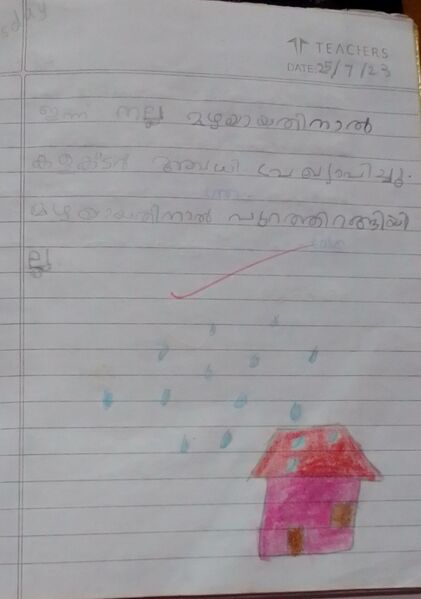 sday
TEACHERS
DATE: 25/7/23
ഇന്ന് നല്ല മഴയായതിനാൽ
കളക്ടർ അവധി പ്രഖ്യാപിച്ചു.
മഴയായതിനാൽ പുറത്തിറങ്ങിയി
ല്ല